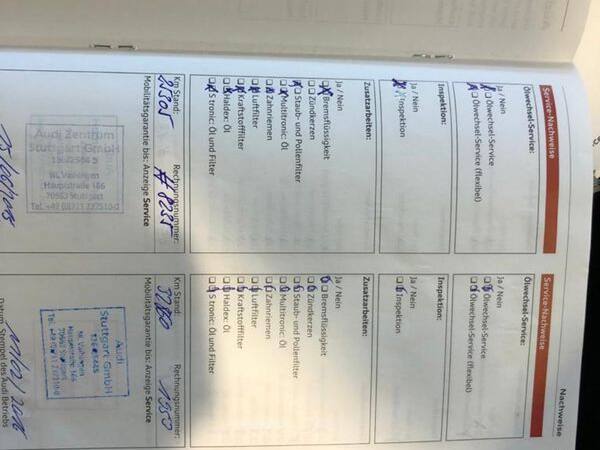 Nachweise
Service-Nachweise
Ölwechsel-Service:
Ja / Nein
Ölwechsel-Service
Ölwechsel-Service (flexibel)
Inspektion:
Ja / Nein
Inspektion
Zusatzarbeiten:
Ja / Nein
Bremsflüssigkeit
Zündkerzen
Staub- und Pollenfilter
Multitronic: Öl
Zahnriemen
Luftfilter
Kraftstofffilter
Haldex: Öl
S tronic: Öl und Filter
Km Stand: Rechnungsnummer:
25505 # 8235
Mobilitätsgarantie bis: Anzeige Service
Audi Zentrum
Stuttgart GmbH
NL Vaihingen
Hauptstraße 166
70563 Stuttgart
Service-Nachweise
Ölwechsel-Service:
Ja / Nein
Ölwechsel-Service
Ölwechsel-Service (flexibel)
Inspektion:
Ja / Nein
Inspektion
Zusatzarbeiten:
Ja / Nein
Bremsflüssigkeit
Zündkerzen
Staub- und Pollenfilter
Multitronic: Öl
Zahnriemen
Luftfilter
Kraftstofffilter
Haldex: Öl
S tronic: Öl und Filter
Km Stand: Rechnungsnummer:
Mobilitätsgarantie bis: Anzeige Service
Audi
Stuttgart GmbH
NL Vaihingen
Datum, Stempel des Audi Betriebs